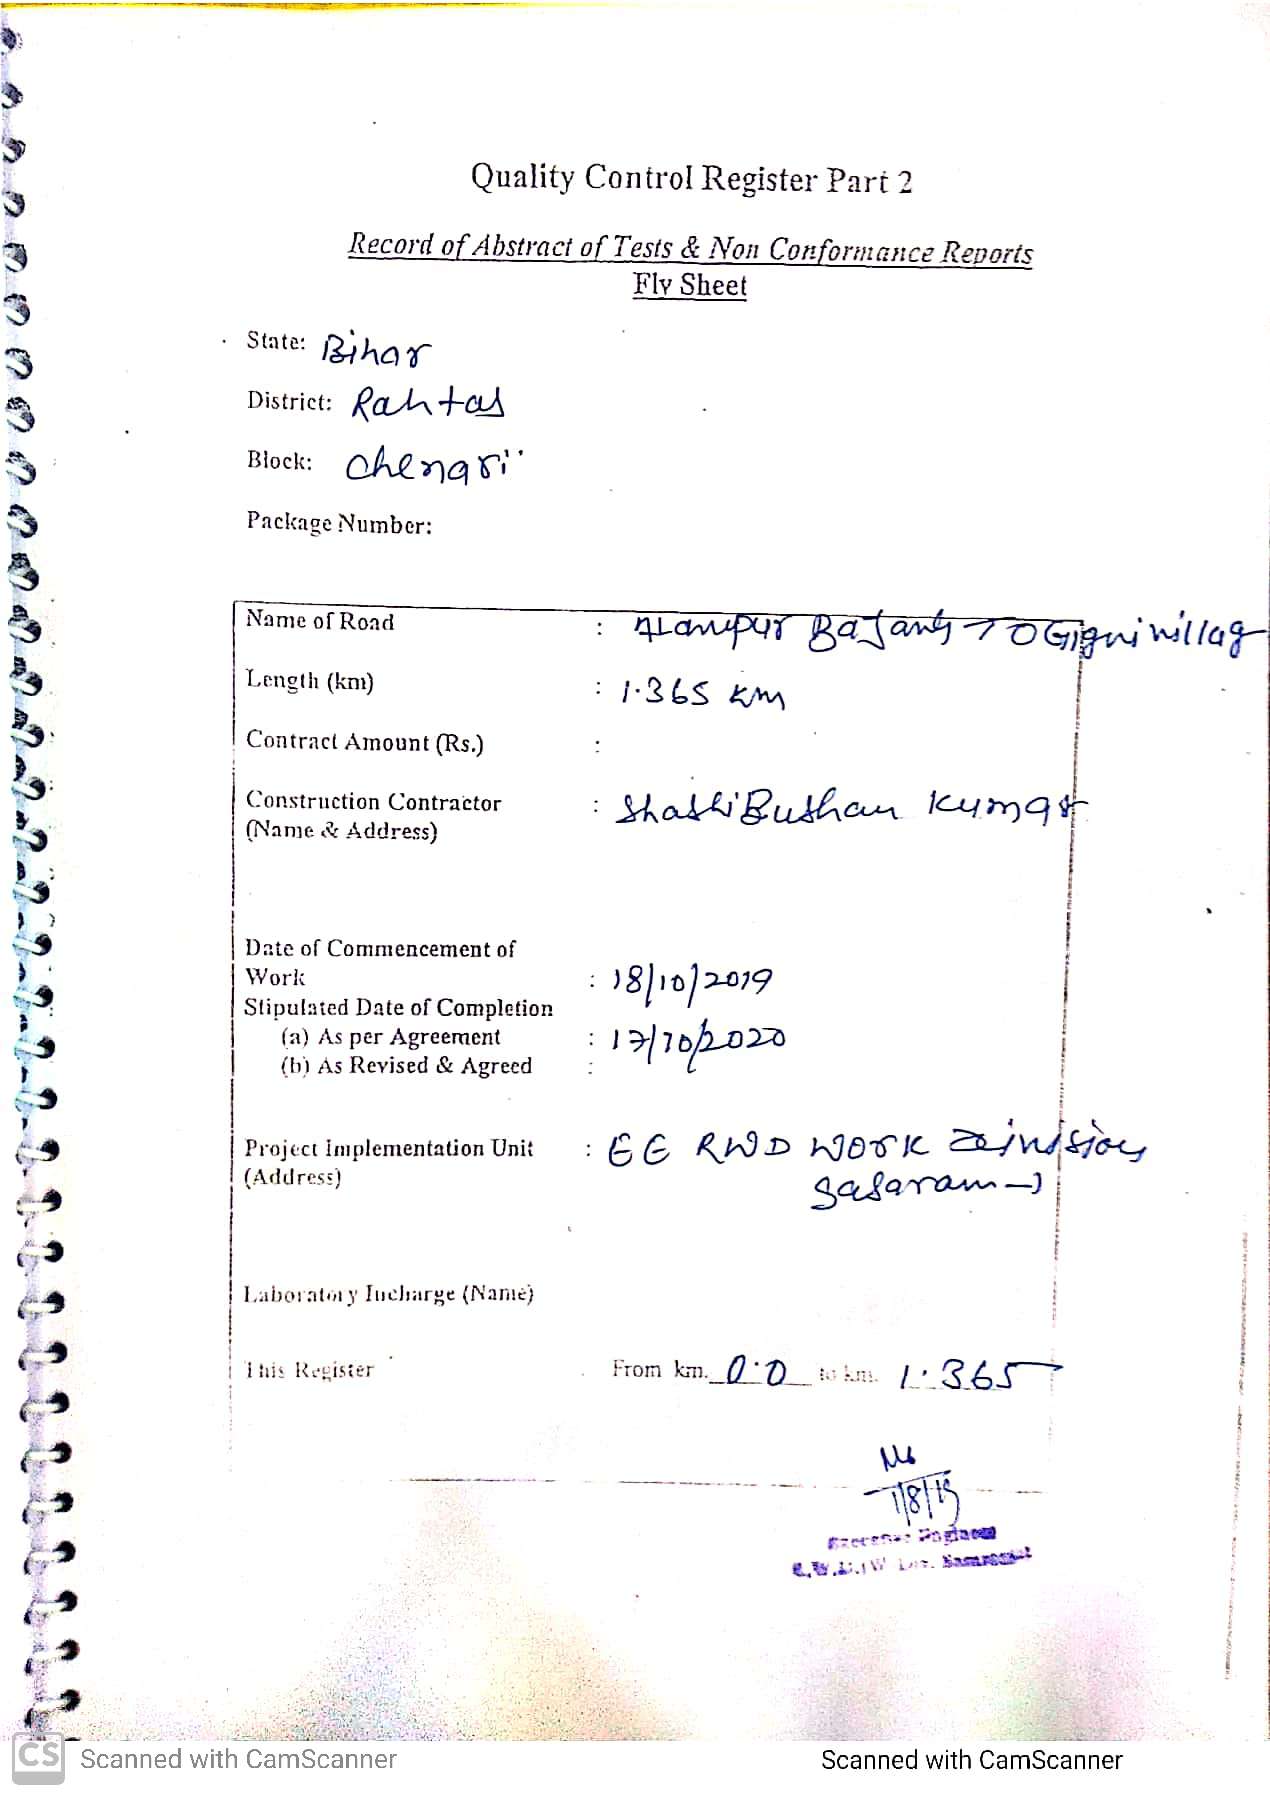 Quality Control Register Part 2
Record of Abstract of Tests & Non Conformance Reports
Fly Sheet
State: Bihar
District: Rahtas
Block: Chenari
Package Number:
Name of Road : Alampur Bajanty TO Gigni village
Length (km) : 1.365 km
Contract Amount (Rs.) :
Construction Contractor : Shashi Bushan Kumar
(Name & Address)
Date of Commencement of
Work : 18/10/2019
Stipulated Date of Completion
(a) As per Agreement : 17/10/2020
(b) As Revised & Agreed :
Project Implementation Unit : EE RWD WORK
(Address) Sasaram-1
Laboratory Incharge (Name)
This Register From km. 0.0 to km. 1.365
1/8/19
Executive Engineer
R.W.D.(W) Div.
CS Scanned with CamScanner Scanned with CamScanner